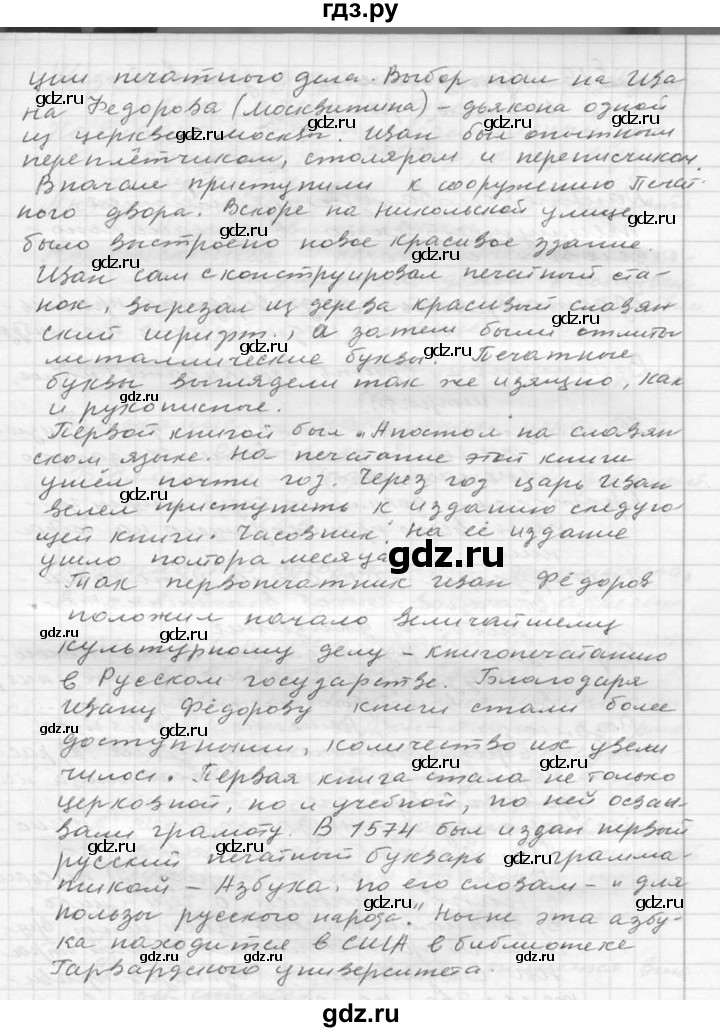 гдз.ру
ции печатного дела. Выбор пал на Ива
на Федорова (Москвитина) – дьякона одной
из церквей Москвы. Иван был опытным
переплётчиком, столяром и переписчиком.
Вначале приступили к сооружению Печат
ного двора. Вскоре на Никольской улице
было выстроено новое красивое здание.
Иван сам сконструировал печатный ста-
нок, вырезал из дерева красивый славян
ский шрифт, а затем были отлиты
металлические буквы. Печатные
буквы выглядели так же изящно, как
и рукописные.
Первой книгой был „Апостол" на славян
ском языке. На печатание этой книги
ушёл почти год. Через год царь Иван
велел приступить к изданию следую
щей книги. Часовник. На её издание
ушло полтора месяца
Так первопечатник Иван Фёдоров
положил начало величайшему
культурному делу – книгопечатанию
в Русском государстве. Благодаря
Ивану Фёдорову книги стали более
доступными, количество их увели
чилось. Первая книга стала не только
церковной, но и учебной, по ней осваи-
вали грамоту. В 1574 был издан первый
русский печатный букварь грамма-
тикой – Азбука, по его словам – „для
пользы русского народа". Ныне эта азбу-
ка находится в США в библиотеке
Гарвардского университета.
gdz.ru
gdz.ru